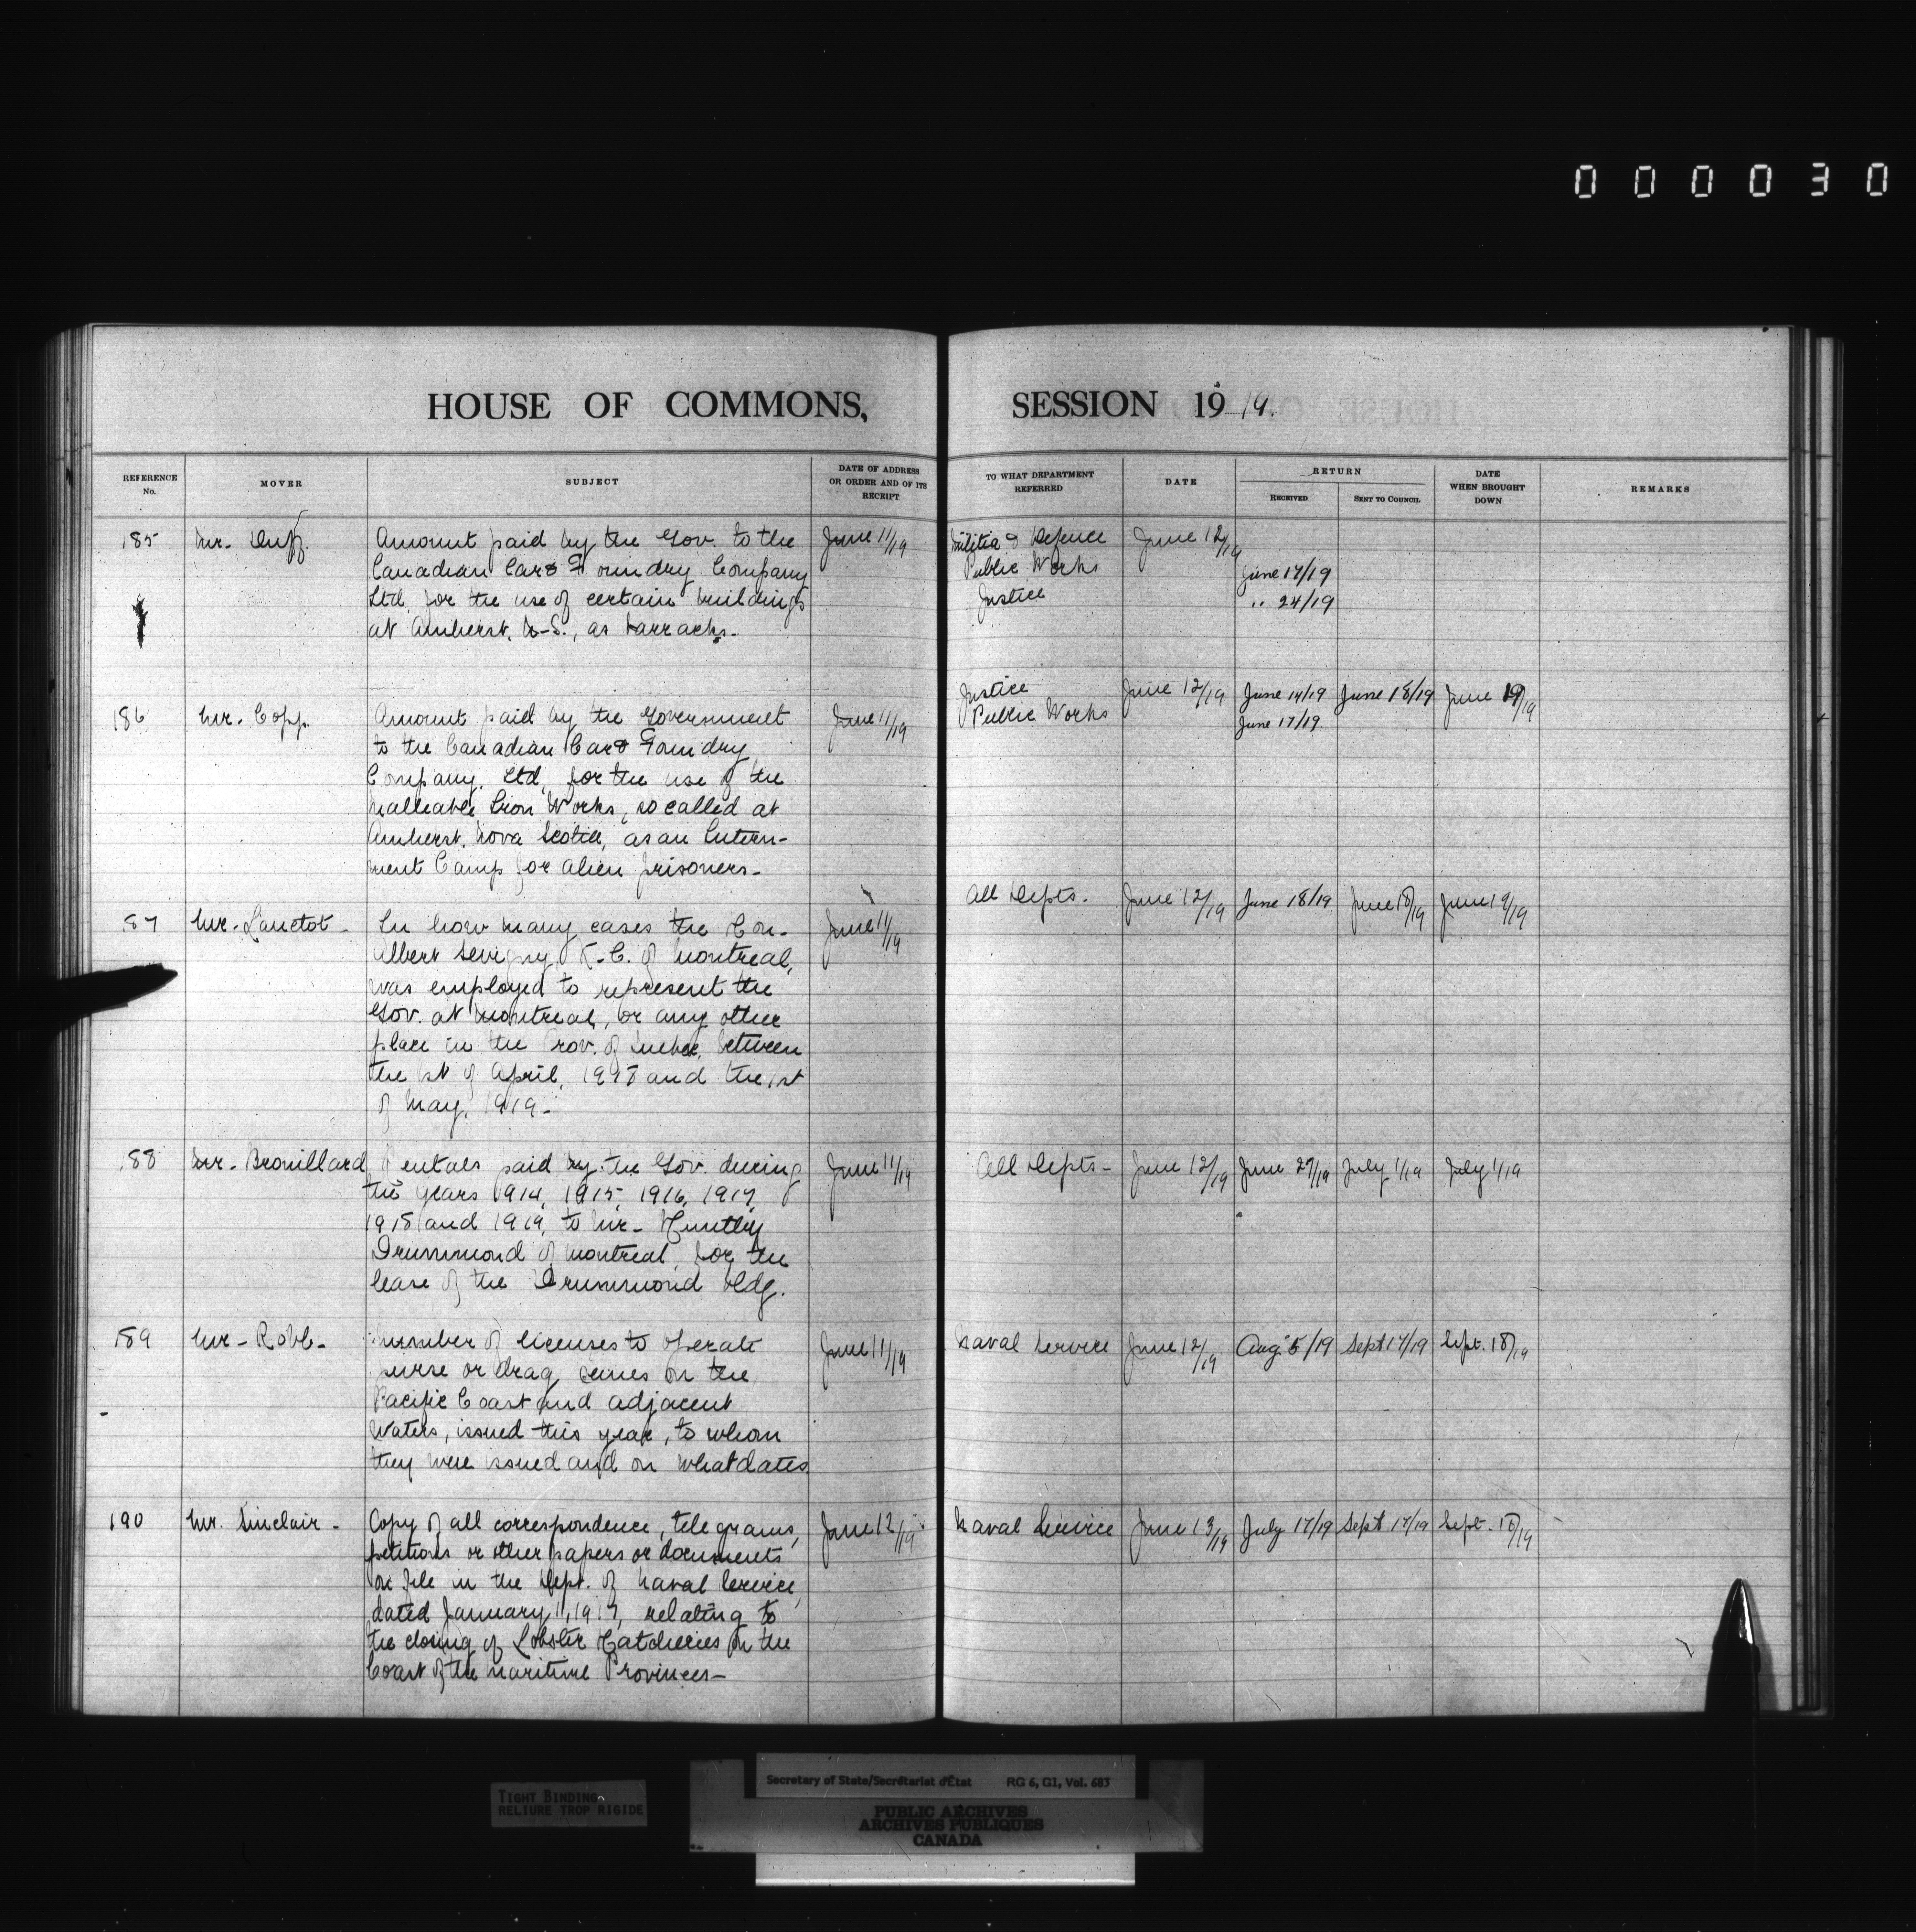 000030
HOUSE OF COMMONS,
REFERENCE No.
MOVER
SUBJECT
DATE OF ADDRESS OR ORDER AND OF ITS RECEIPT
185 Mr. Duff. Amount paid by the Gov. to the June 11/19
Canadian Car & Foundry Company
Ltd, for the use of certain buildings
at Amherst, N-S., as barracks-
186 Mr. Copp. Amount paid by the Government June 11/19
to the Canadian Car & Foundry
Company, Ltd, for the use of the
Malleable Iron Works, so called at
Amherst, Nova Scotia, as an Intern-
ment Camp for alien prisoners-
187 Mr. Lanctot- In how many cases the Hon. June 11/19
Albert Sevigny, K-C. of Montreal,
was employed to represent the
Gov. at Montreal, or any other
place in the Prov. of Quebec, between
the 1st of April, and the 1st
of May, 1919-
188 Mr. Brouillard Rentals paid by the Gov. during June 11/19
the years 1914, 1915, 1916, 1917,
1918 and 1919, to Mr- Huntley
Drummond of Montreal, for the
lease of the Drummond bldg.
189 Mr- Robb- Number of licenses to operate June 11/19
purse or drag seines on the
Pacific Coast and adjacent
Waters, issued this year, to whom
they were issued and on what dates
190 Mr. Sinclair- Copy of all correspondence, telegrams, June 12/19
petitions or other papers or documents
on file in the Dept. of Naval Service,
dated January 11, 1917, relating to
the closing of Lobster Hatcheries on the
Coast of the Maritime Provinces-
SESSION 1919.
TO WHAT DEPARTMENT REFERRED
DATE
RETURN
RECEIVED
SENT TO COUNCIL
DATE WHEN BROUGHT DOWN
REMARKS
Militia & Defence June 12/19
Public Works June 17/19
Justice " 24/19
Justice June 12/19 June 14/19 June 18/19 June 19/19
Public Works June 17/19
All Depts. June 12/19 June 18/19 June 18/19 June 19/19
All Depts- June 12/19 June 27/19 July 1/19 July 1/19
Naval Service June 12/19 Aug. 5/19 Sept 17/19 Sept. 18/19
Naval Service June 13/19 July 17/19 Sept 17/19 Sept. 18/19
TIGHT BINDING
RELIURE TROP RIGIDE
Secretary of State/Secrétariat d'État RG 6, G1, Vol. 683
PUBLIC ARCHIVES
ARCHIVES PUBLIQUES
CANADA